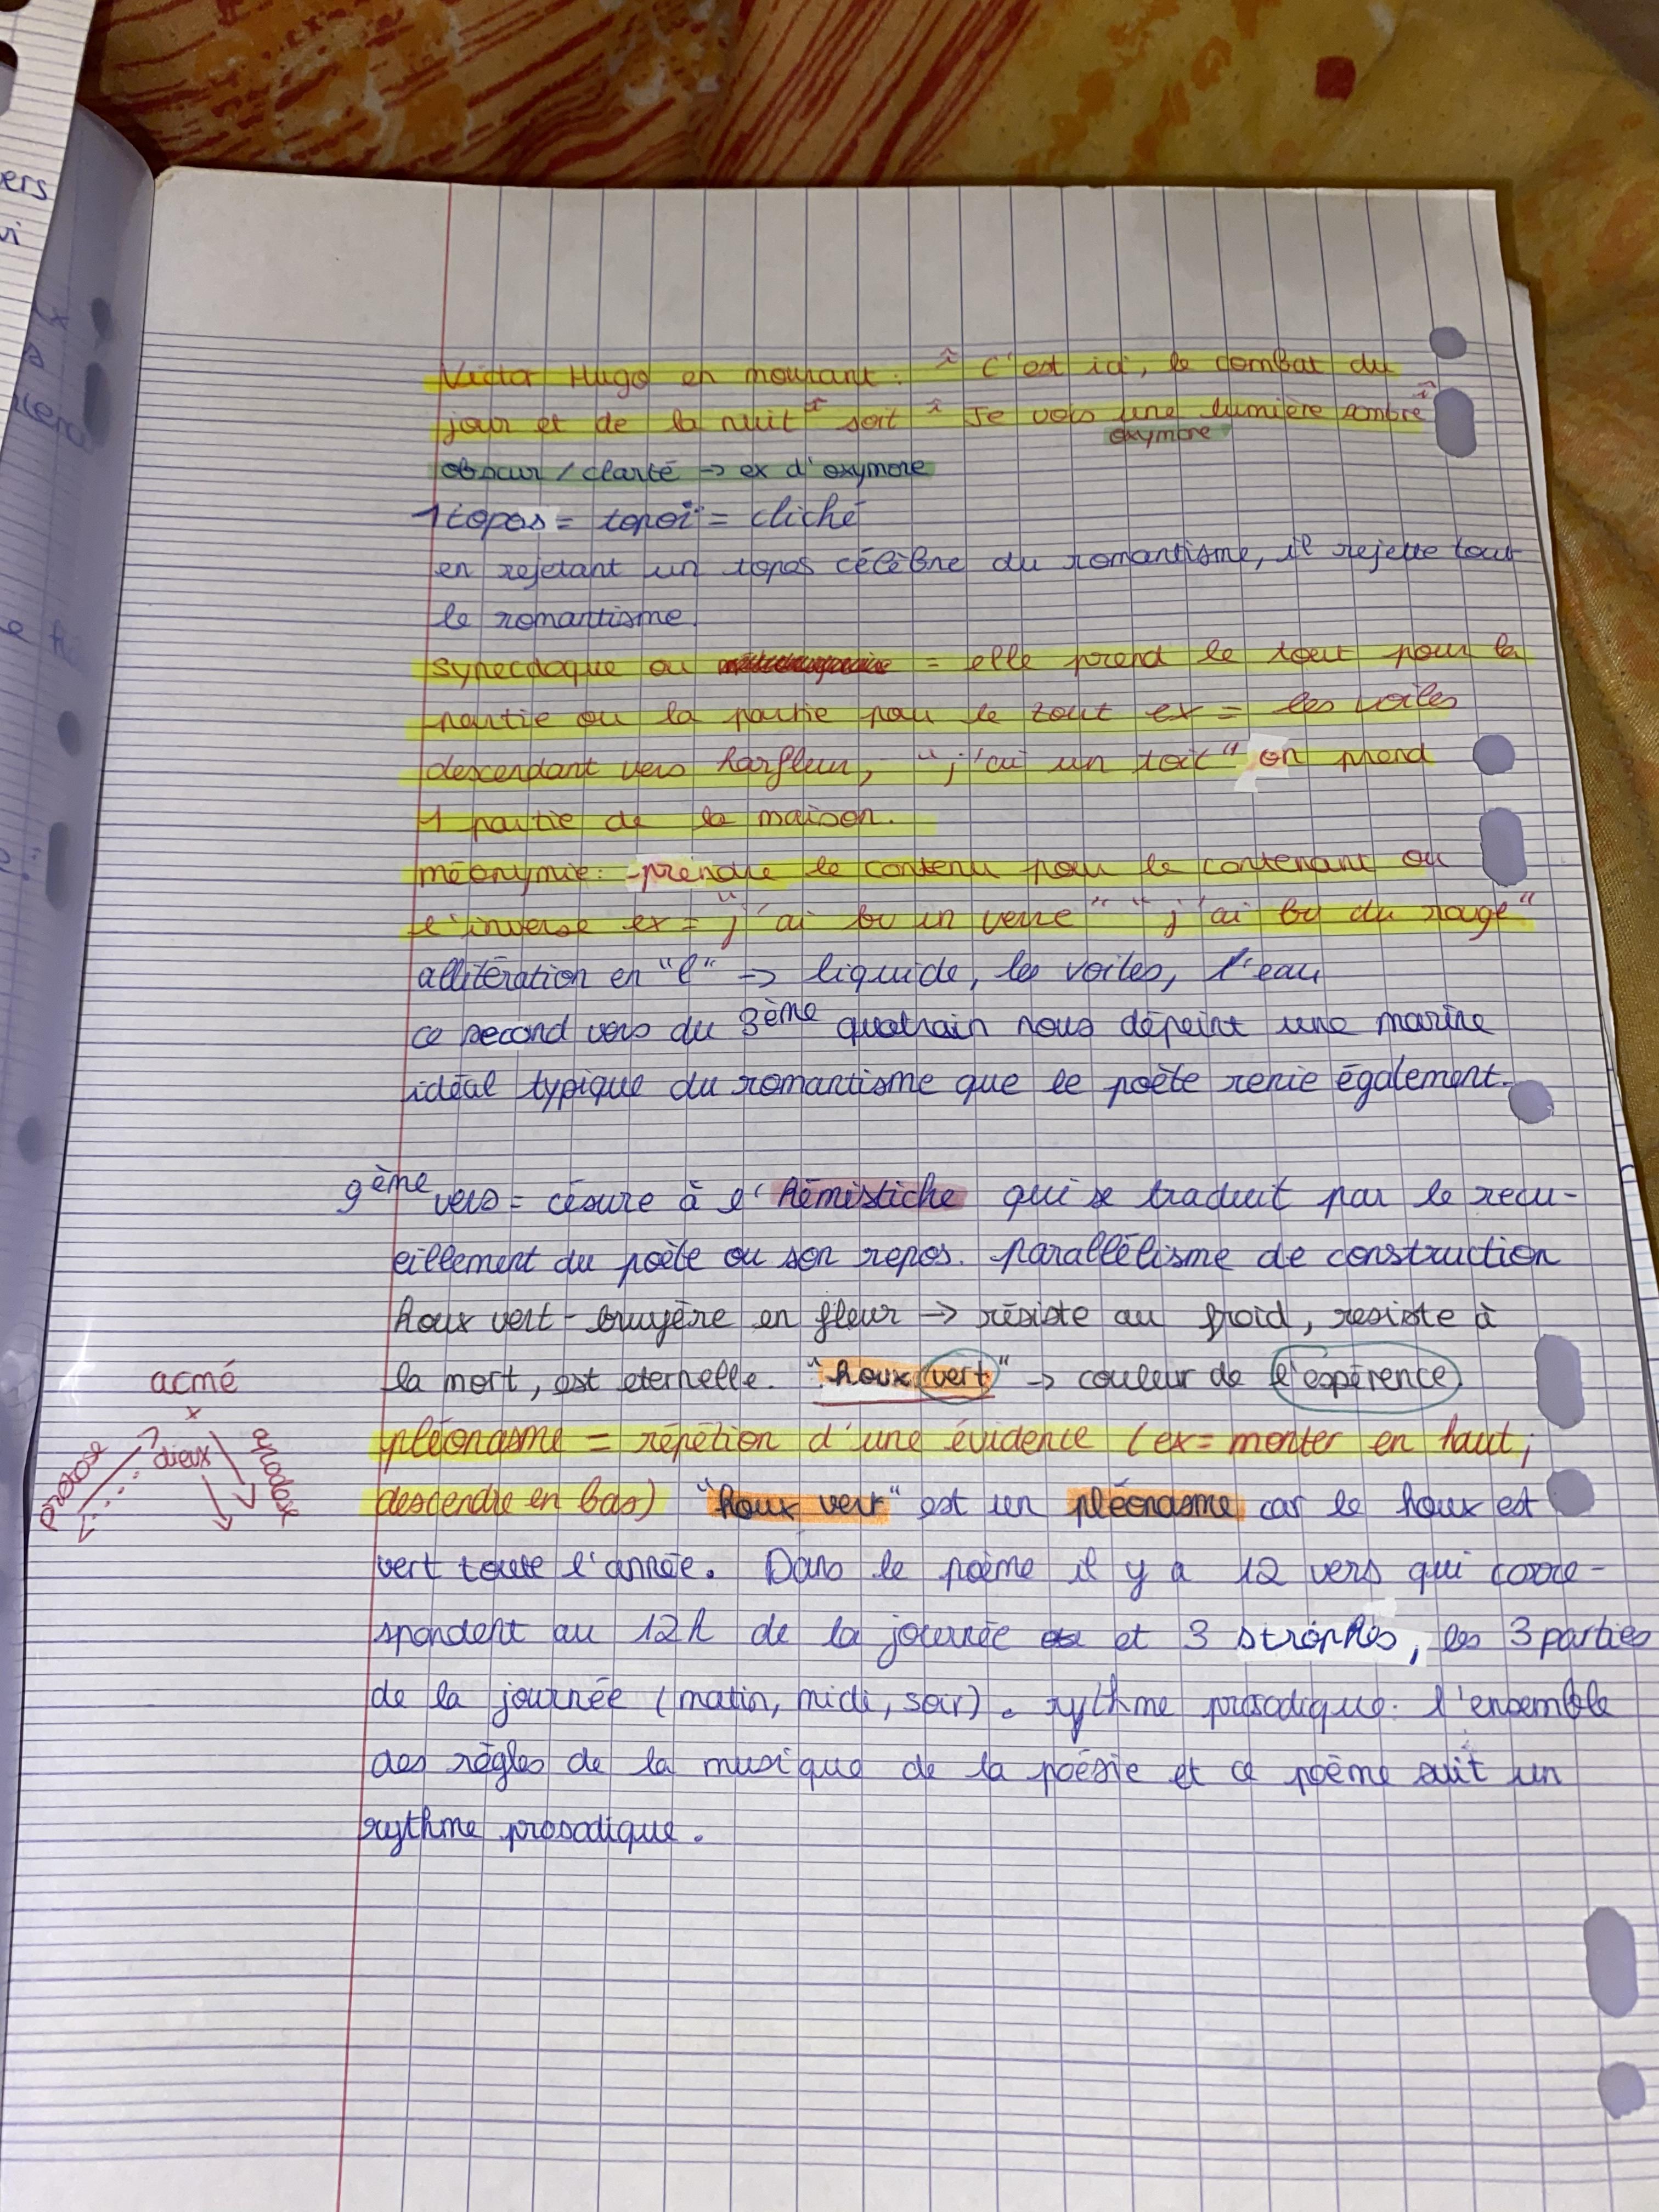 ers
vi
Victor Hugo en mourant : " C'est ici, le combat du
jour et de la nuit " soit " Je vois une lumière sombre "
oxymore
obscur / clarté → ex d'oxymore
1 topos = topoï = cliché
en rejetant un topos célèbre du romantisme, il rejette tout
le romantisme.
synecdoque ou = elle prend le tout pour la
partie ou la partie pour le tout ex = les voiles
descendant vers harfleur, "j'ai un toit" on prend
1 partie de la maison.
méonymie : -prendre le contenu pour le contenant ou
l'inverse ex = "j'ai bu un verre" "j'ai bu du rouge"
allitération en "l" → liquide, les voiles, l'eau
ce second vers du 3ème quatrain nous dépeint une marine
idéal typique du romantisme que le poète renie également.
9ème vers = césure à l'hémistiche qui se traduit par le recu-
eillement du poète ou son repos. parallélisme de construction
houx vert - bruyère en fleur → résiste au froid, resiste à
la mort, est eternelle. "houx vert" → couleur de l'espérence
acmé
x
protase
dieux
apodose
pléonasme = répétion d'une évidence (ex = monter en haut,
descendre en bas) "houx vert" est un pléonasme car le houx est
vert toute l'année. Dans le poème il y a 12 vers qui corre-
spondent au 12h de la journée et 3 strophes, les 3 parties
de la journée (matin, midi, soir). rythme prosodique : l'ensemble
des règles de la musique de la poésie et ce poème suit un
rythme prosodique.